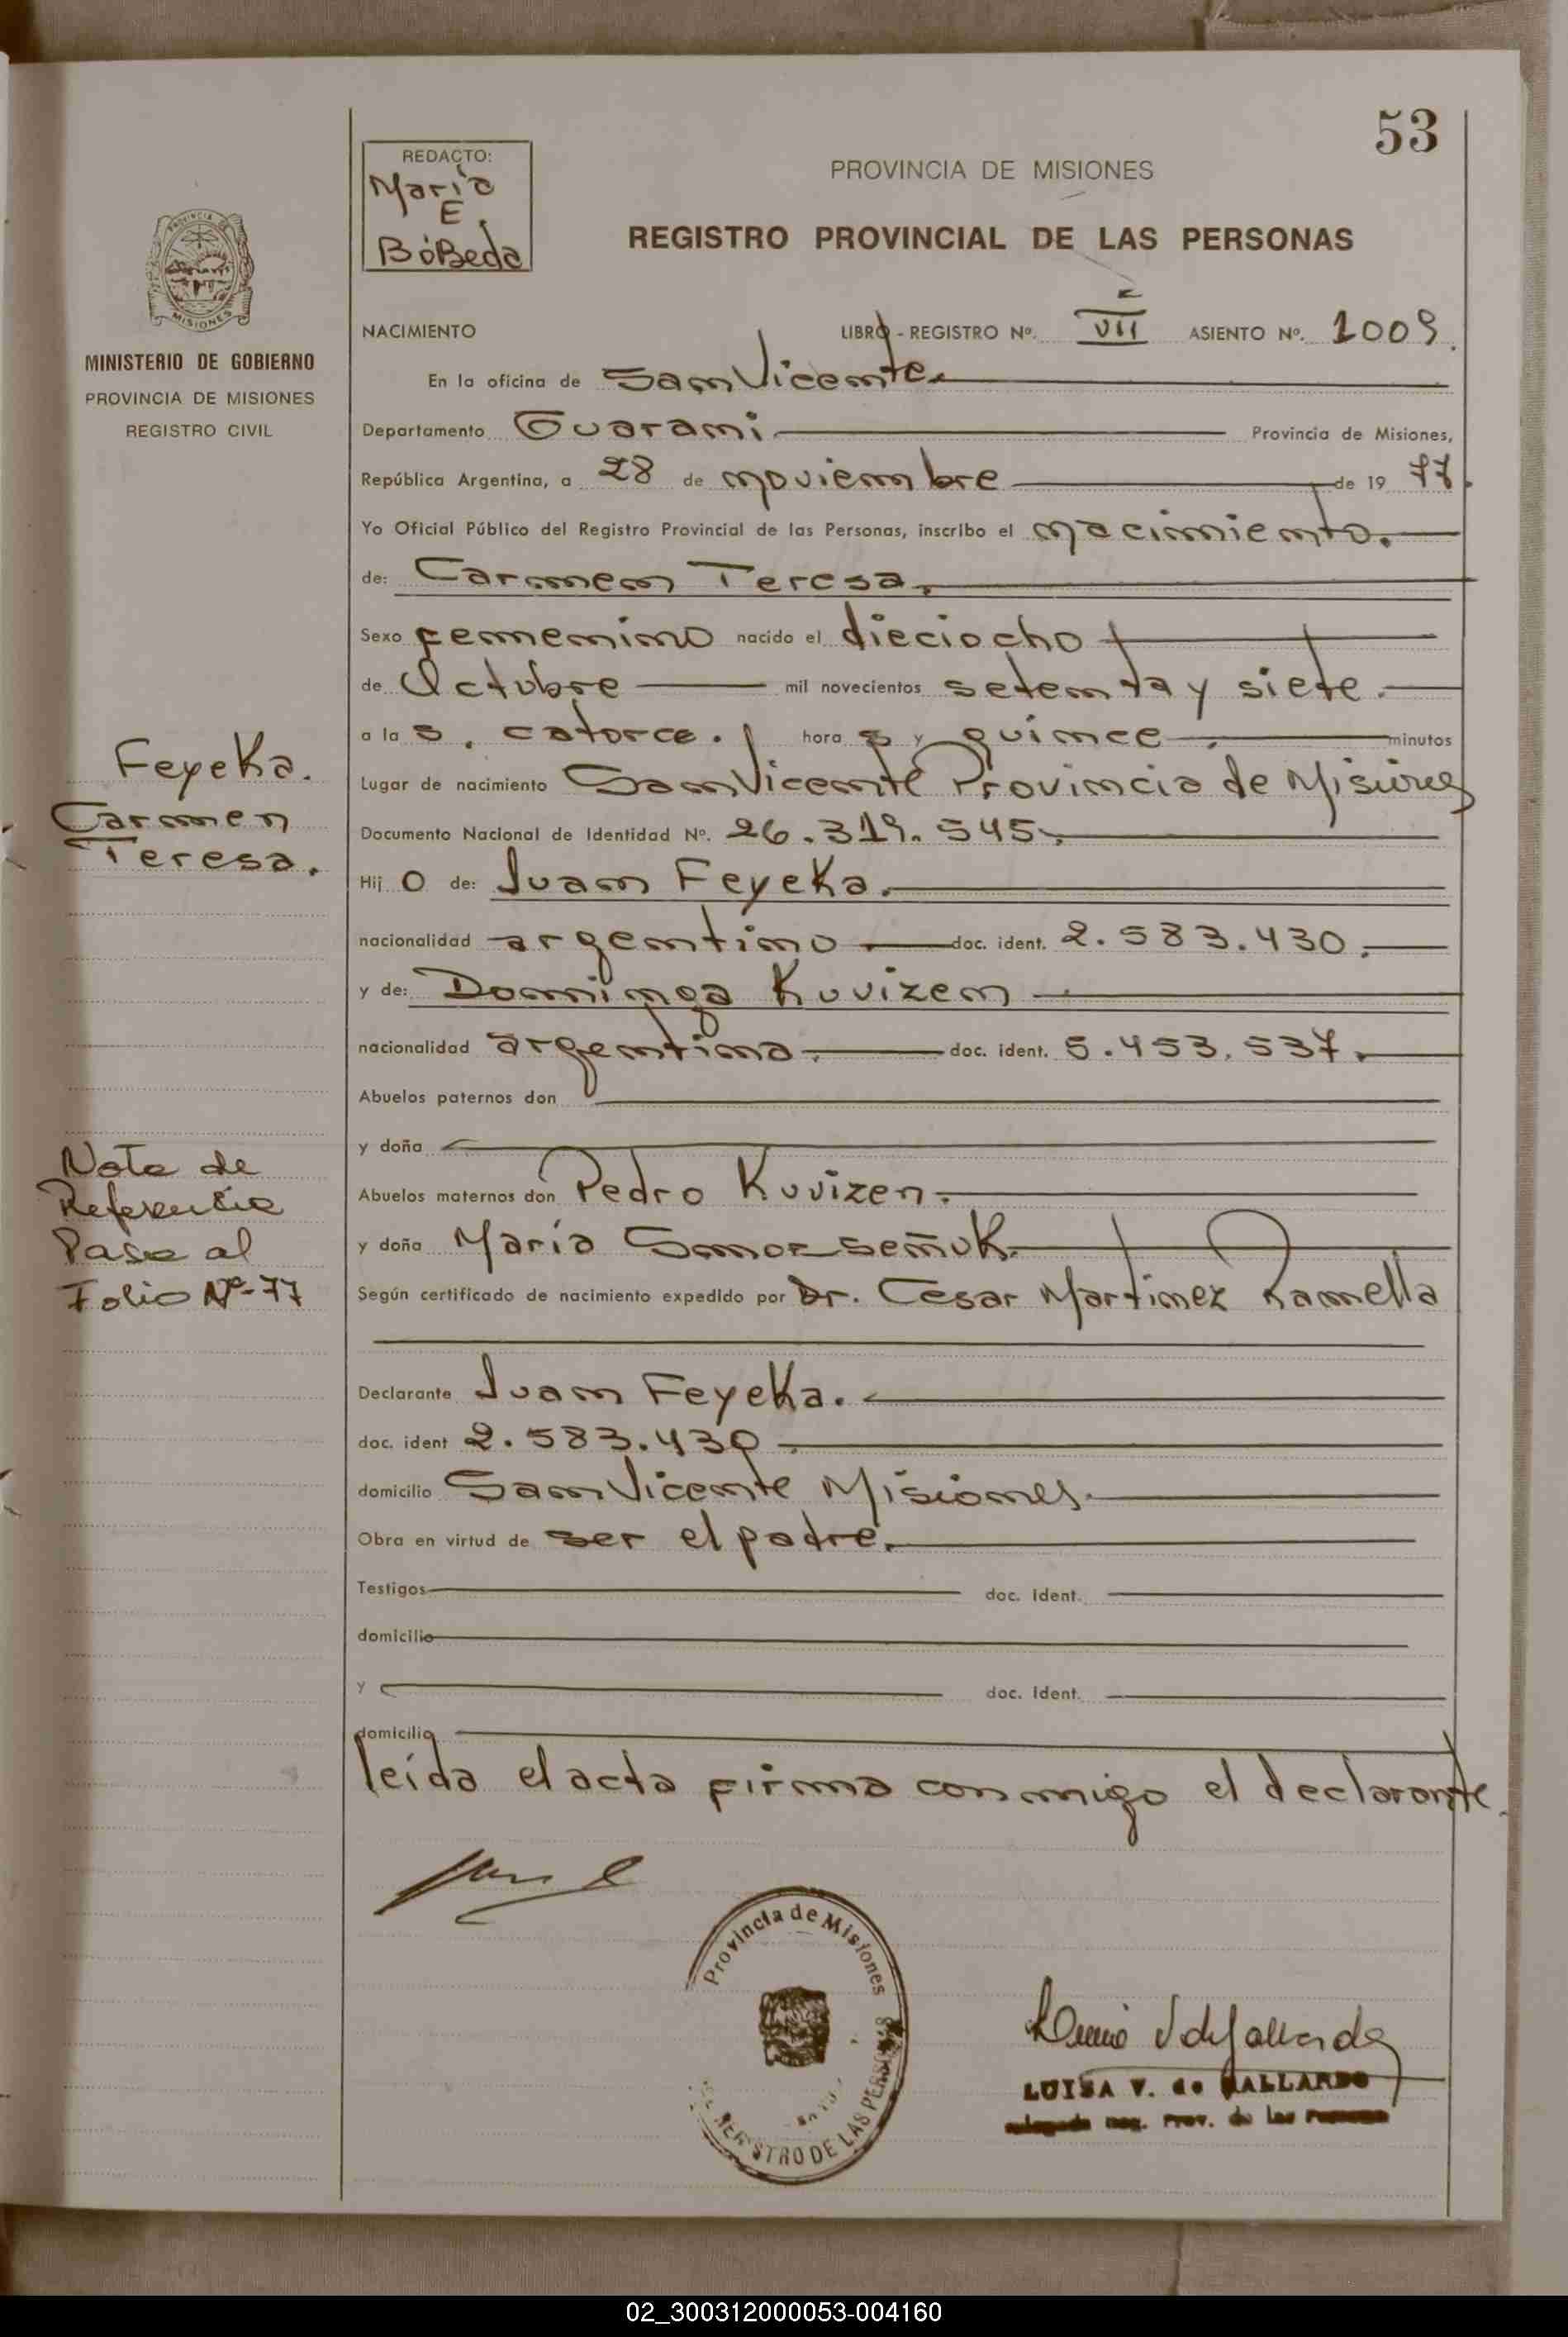 53
REDACTO:
María
E.
BóBeda
PROVINCIA DE MISIONES
REGISTRO PROVINCIAL DE LAS PERSONAS
PROVINCIA DE
MISIONES
MINISTERIO DE GOBIERNO
PROVINCIA DE MISIONES
REGISTRO CIVIL
NACIMIENTO LIBRO - REGISTRO Nº. VII ASIENTO Nº. 1009.
En la oficina de San Vicente.
Departamento Guarani Provincia de Misiones,
República Argentina, a 28 de noviembre de 19 77.
Yo Oficial Público del Registro Provincial de las Personas, inscribo el nacimiento.
de: Carmen Teresa.
Sexo femenino nacido el dieciocho
de Octubre mil novecientos setenta y siete.
a la s. catorce. hora s y quince minutos
Lugar de nacimiento San Vicente Provincia de Misiones
Documento Nacional de Identidad Nº. 26.319.545.
Hij o de: Juan Feyeka.
nacionalidad argentino doc. ident. 2.583.430.
y de: Dominga Kuvizen
nacionalidad argentina. doc. ident. 5.453.537.
Abuelos paternos don
y doña
Abuelos maternos don Pedro Kuvizen.
y doña María
Según certificado de nacimiento expedido por Dr. Cesar Martinez Ramella
Declarante Juan Feyeka.
doc. ident 2.583.430.
domicilio San Vicente Misiones.
Obra en virtud de ser el padre.
Testigos doc. ident.
domicilio
y doc. ident.
domicilio
leída el acta firma conmigo el declarante.
Feyeka.
Carmen
Teresa.
Nota de
Referencia
Pase al
Folio Nº-77
Provincia de Misiones
REGISTRO DE LAS PERSONAS
LUISA V. de GALLARDO
Prov. de las
02_300312000053-004160